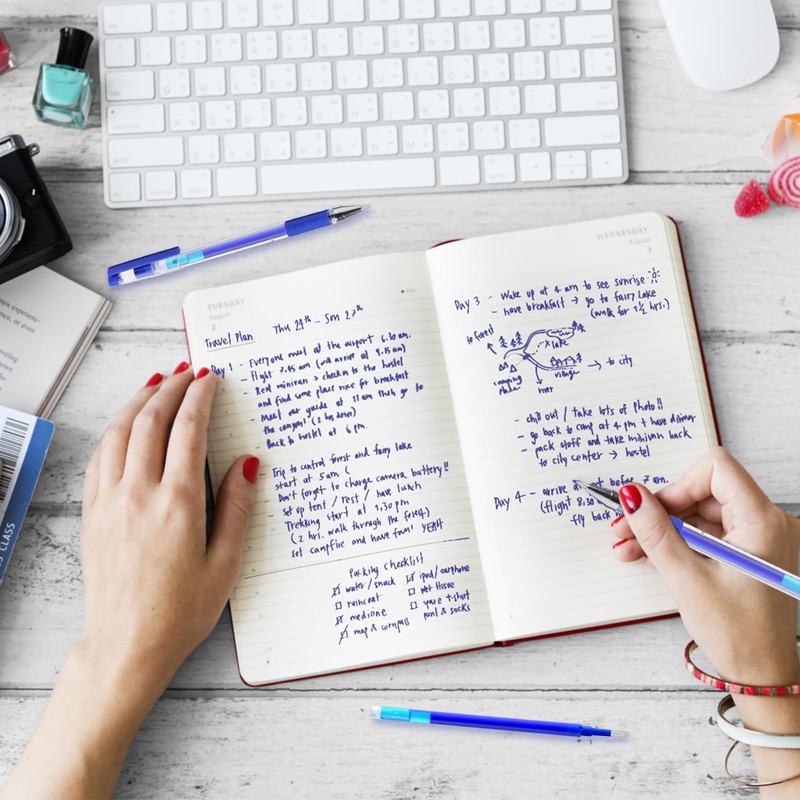 TUESDAY
August
2
Travel Plan Thu 24th - Sun 27th
Day 1 - Everyone meet at the airport 6.30 am.
- flight 7.45 am (will arrive at 9.15 am)
- Rent minivan > check in to the hostel
and find some place nice for breakfast
- Meet our guide at 11 am then go to
the canyon! (2 hrs drive)
- Back to hostel at 6 pm.
- Trip to central forest and fairy lake
start at 5 am
- Don't forget to charge camera battery!!
- set up tent / rest / have lunch
- Trekking start at 1.30 pm
(2 hrs. walk through the forest)
set campfire and have fun! YEAH
Packing Checklist
water/snack
raincoat
medicine
map & compass
ipod/earphone
wet tissue
t-shirt
& socks
WEDNESDAY
August
3
Day 3 - Wake up at 4 am to see sunrise
- have breakfast → go to fairy Lake
(walk for 1½ hrs.)
to forest
lake
camping
village
river
→ to city
- chill out / take lots of photo!!
- go back to camp at 4 pm + have dinner
- pack stuff and take minivan back
to city center → hostel
Day 4 - arrive before 7 am.
(flight 8.30
fly back
CLASS